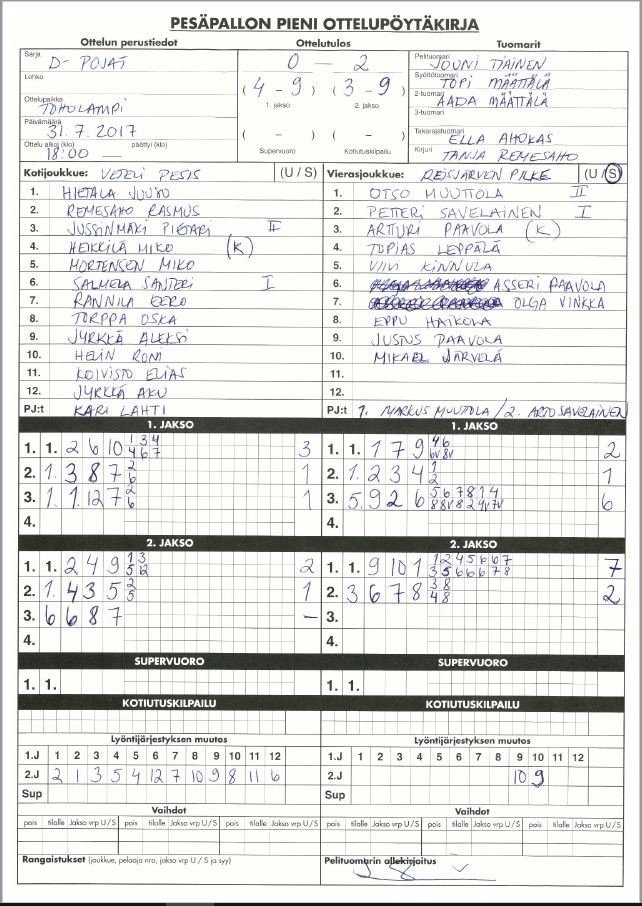 PESÄPALLON PIENI OTTELUPÖYTÄKIRJA
Ottelun perustiedot Ottelutulos Tuomarit
Sarja D- POJAT
Lohko
Ottelupaikka TOHOLAMPI
Päivämäärä 31.7.2017
Ottelu alkoi (klo) päättyi (klo)
18:00 —
0 — 2
( 4 - 9 ) ( 3 - 9 )
1. jakso 2. jakso
( - ) ( - )
Supervuoro Kotiutuskilpailu
Pelituomari JOUNI TIAINEN
Syöttötuomari TOPI MÄÄTTÄLÄ
2-tuomari AADA MÄÄTTÄLÄ
3-tuomari
Takarajatuomari ELLA AHOKAS
Kirjuri TANJA REMESAHO
Kotijoukkue: VETELI PESIS (U / S)
1. HIETALA JUUSO
2. REMESAHO RASMUS
3. JUSSINMÄKI PIETARI II
4. HEIKKILÄ MIKO (K)
5. MORTENSEN MIKO
6. SALMELA SANTERI I
7. RANNILA EERO
8. TORPPA OSKA
9. JYRKKÄ ALEKSI
10. HELIN RONI
11. KOIVISTO ELIAS
12. JYRKKÄ AKU
PJ:t KARI LAHTI
Vierasjoukkue: REISJÄRVEN PILKE (U / S)
1. OTSO MUUTTOLA II
2. PETTERI SAVELAINEN I
3. ARTTURI PAAVOLA (K)
4. TOPIAS LEPPÄLÄ
5. VIIVI KINNULA
6. ASSERI PAAVOLA
7. OLGA VINKKA
8. EPPU HAIKOLA
9. JUSTUS PAAVOLA
10. MIKAEL JÄRVELÄ
11.
12.
PJ:t 1. MARKUS MUUTOLA / 2. ARTO SAVELAINEN
1. JAKSO
1. 1. 2 6 10 1 3 4 3
4 6 7
2. 1. 3 8 7 2 1
6
3. 1. 1. 12 7 2 1
6
4.
1. JAKSO
1. 1. 1 7 9 4 6 2
6V 8V
2. 1. 2 3 4 1 1
2
3. 5. 9 2 6 5 6 7 8 1 4 6
8 8V 8 2 4V 7V
4.
2. JAKSO
1. 1. 2 4 9 1 3 2
5 12
2. 1. 4 3 5 2 1
5
3. 6 6 8 7 —
4.
2. JAKSO
1. 1. 9 10 1 1 2 4 5 6 6 7 7
3 5 6 6 6 7 8
2. 3 6 7 8 3 8 2
4 8
3.
4.
SUPERVUORO SUPERVUORO
1. 1. 1. 1.
KOTIUTUSKILPAILU KOTIUTUSKILPAILU
Lyöntijärjestyksen muutos Lyöntijärjestyksen muutos
1.J 1 2 3 4 5 6 7 8 9 10 11 12 1.J 1 2 3 4 5 6 7 8 9 10 11 12
2.J 2 1 3 5 4 12 7 10 9 8 11 6 2.J 10 9
Sup Sup
Vaihdot Vaihdot
pois tilalle Jakso vrp U / S pois tilalle Jakso vrp U / S pois tilalle Jakso vrp U / S pois tilalle Jakso vrp U / S
Rangaistukset (joukkue, pelaaja nro, jakso vrp U / S ja syy) Pelituomarin allekirjoitus